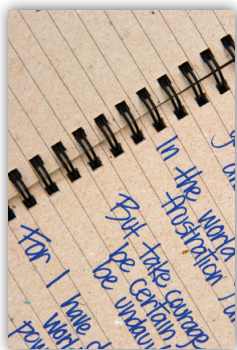 In the world
frustration
But take courage
be certain
be undau
For I have
world
pow